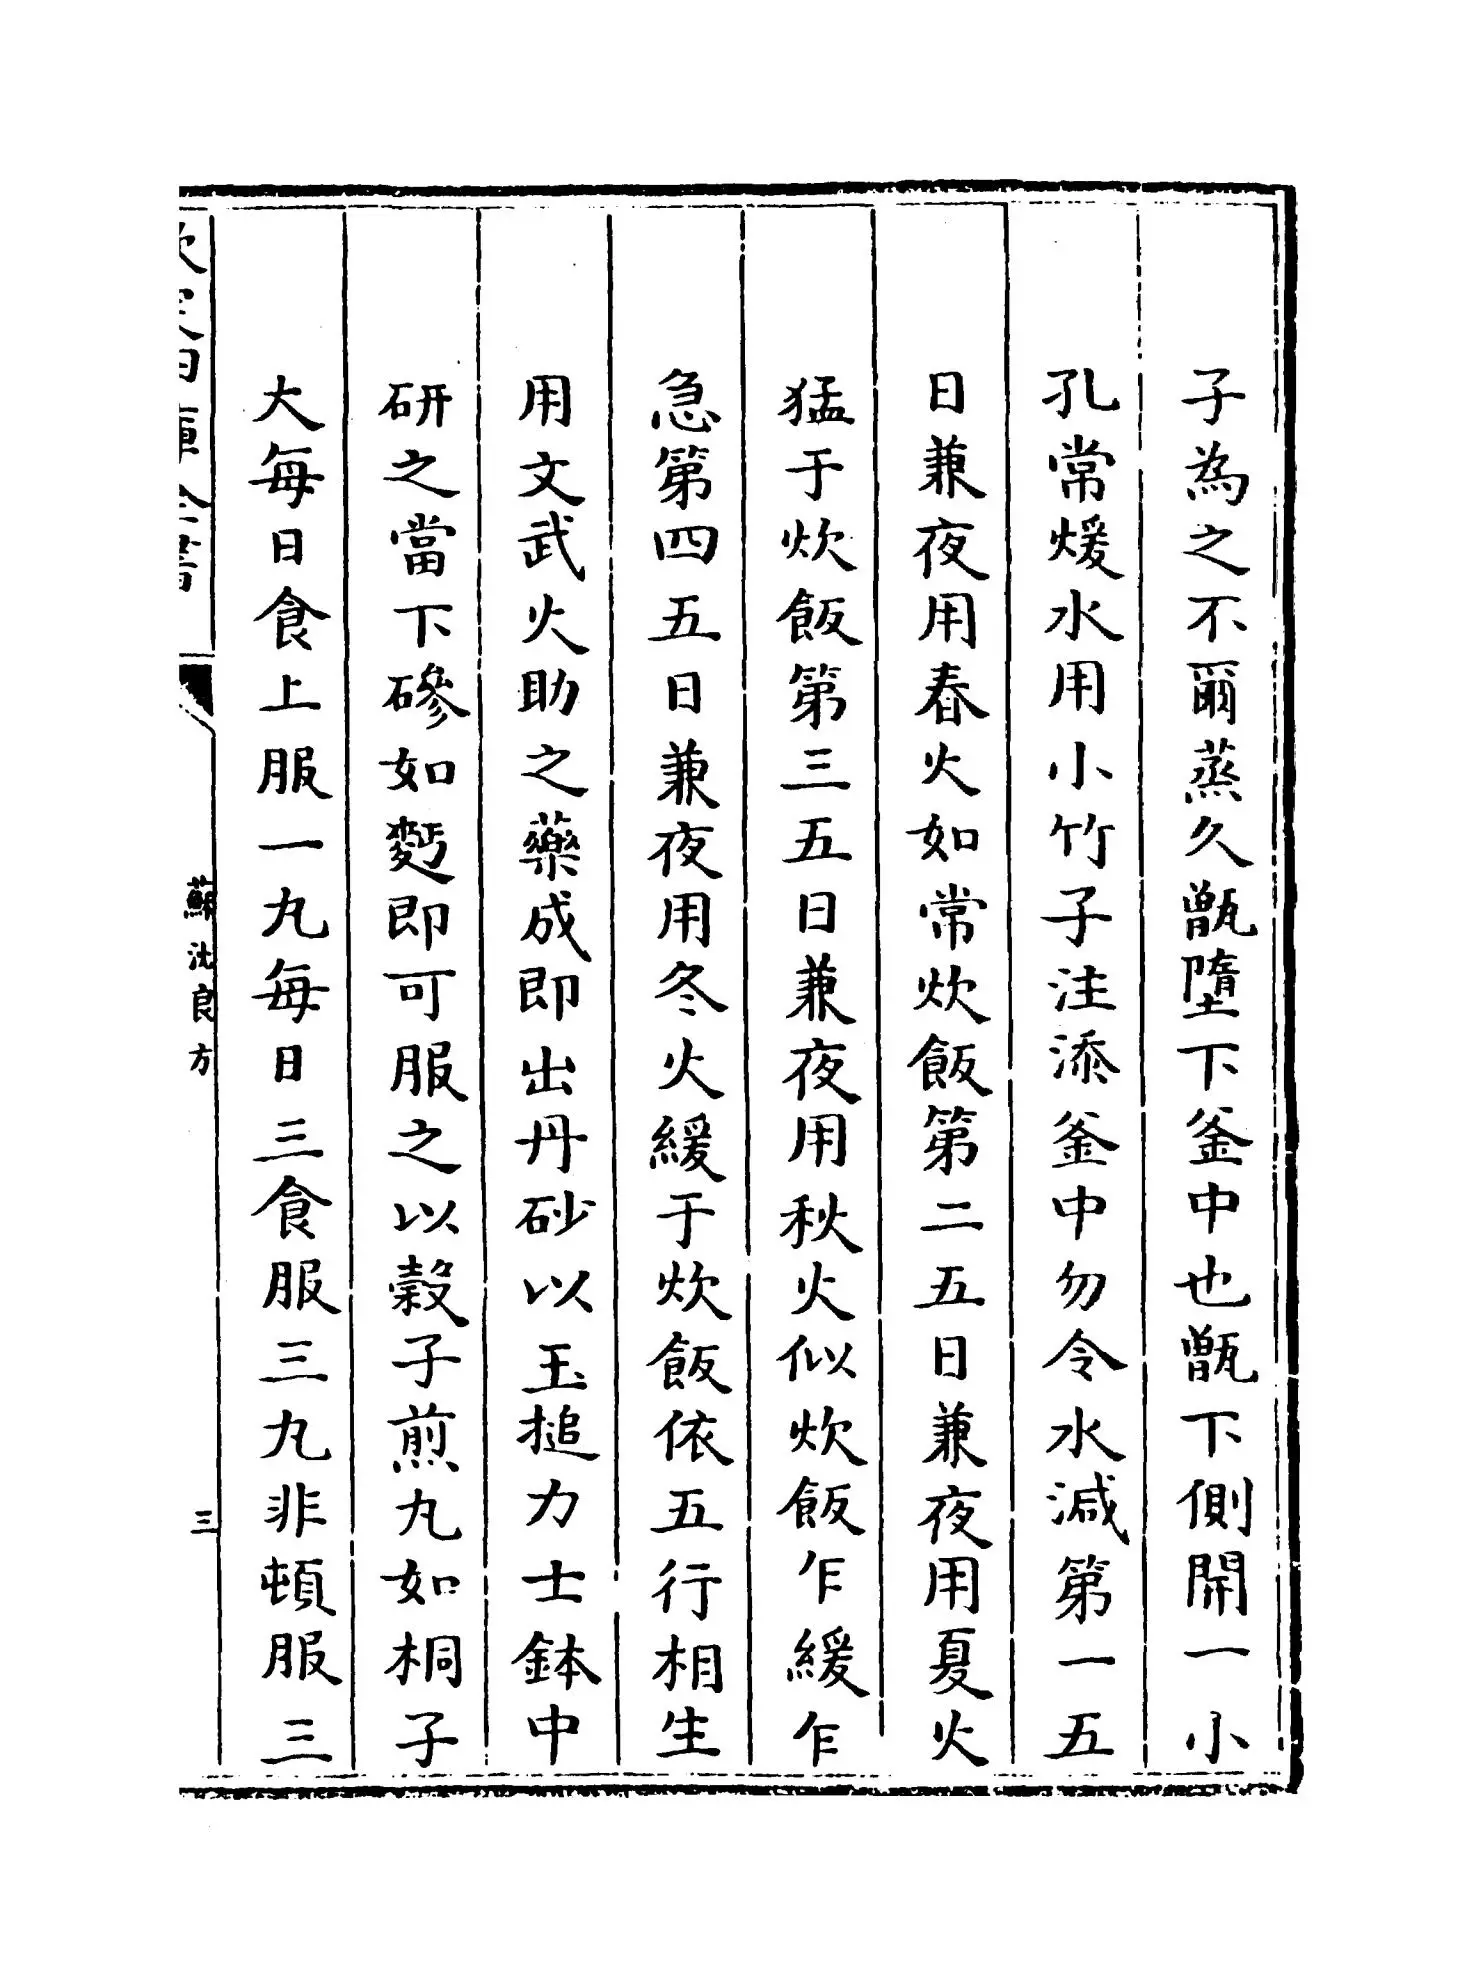 子為之不爾蒸久甑墮下釜中也甑下側開一小
孔常煖水用小竹子注添釜中勿令水減第一五
日兼夜用春火如常炊飯第二五日兼夜用夏火
猛于炊飯第三五日兼夜用秋火似炊飯乍緩乍
急第四五日兼夜用冬火緩于炊飯依五行相生
用文武火助之藥成即出丹砂以玉搥力士鉢中
研之當下磣如麪即可服之以穀子煎丸如桐子
大每日食上服一丸每日三食服三丸非頓服三
欽定四庫全書
蘇沈良方
三